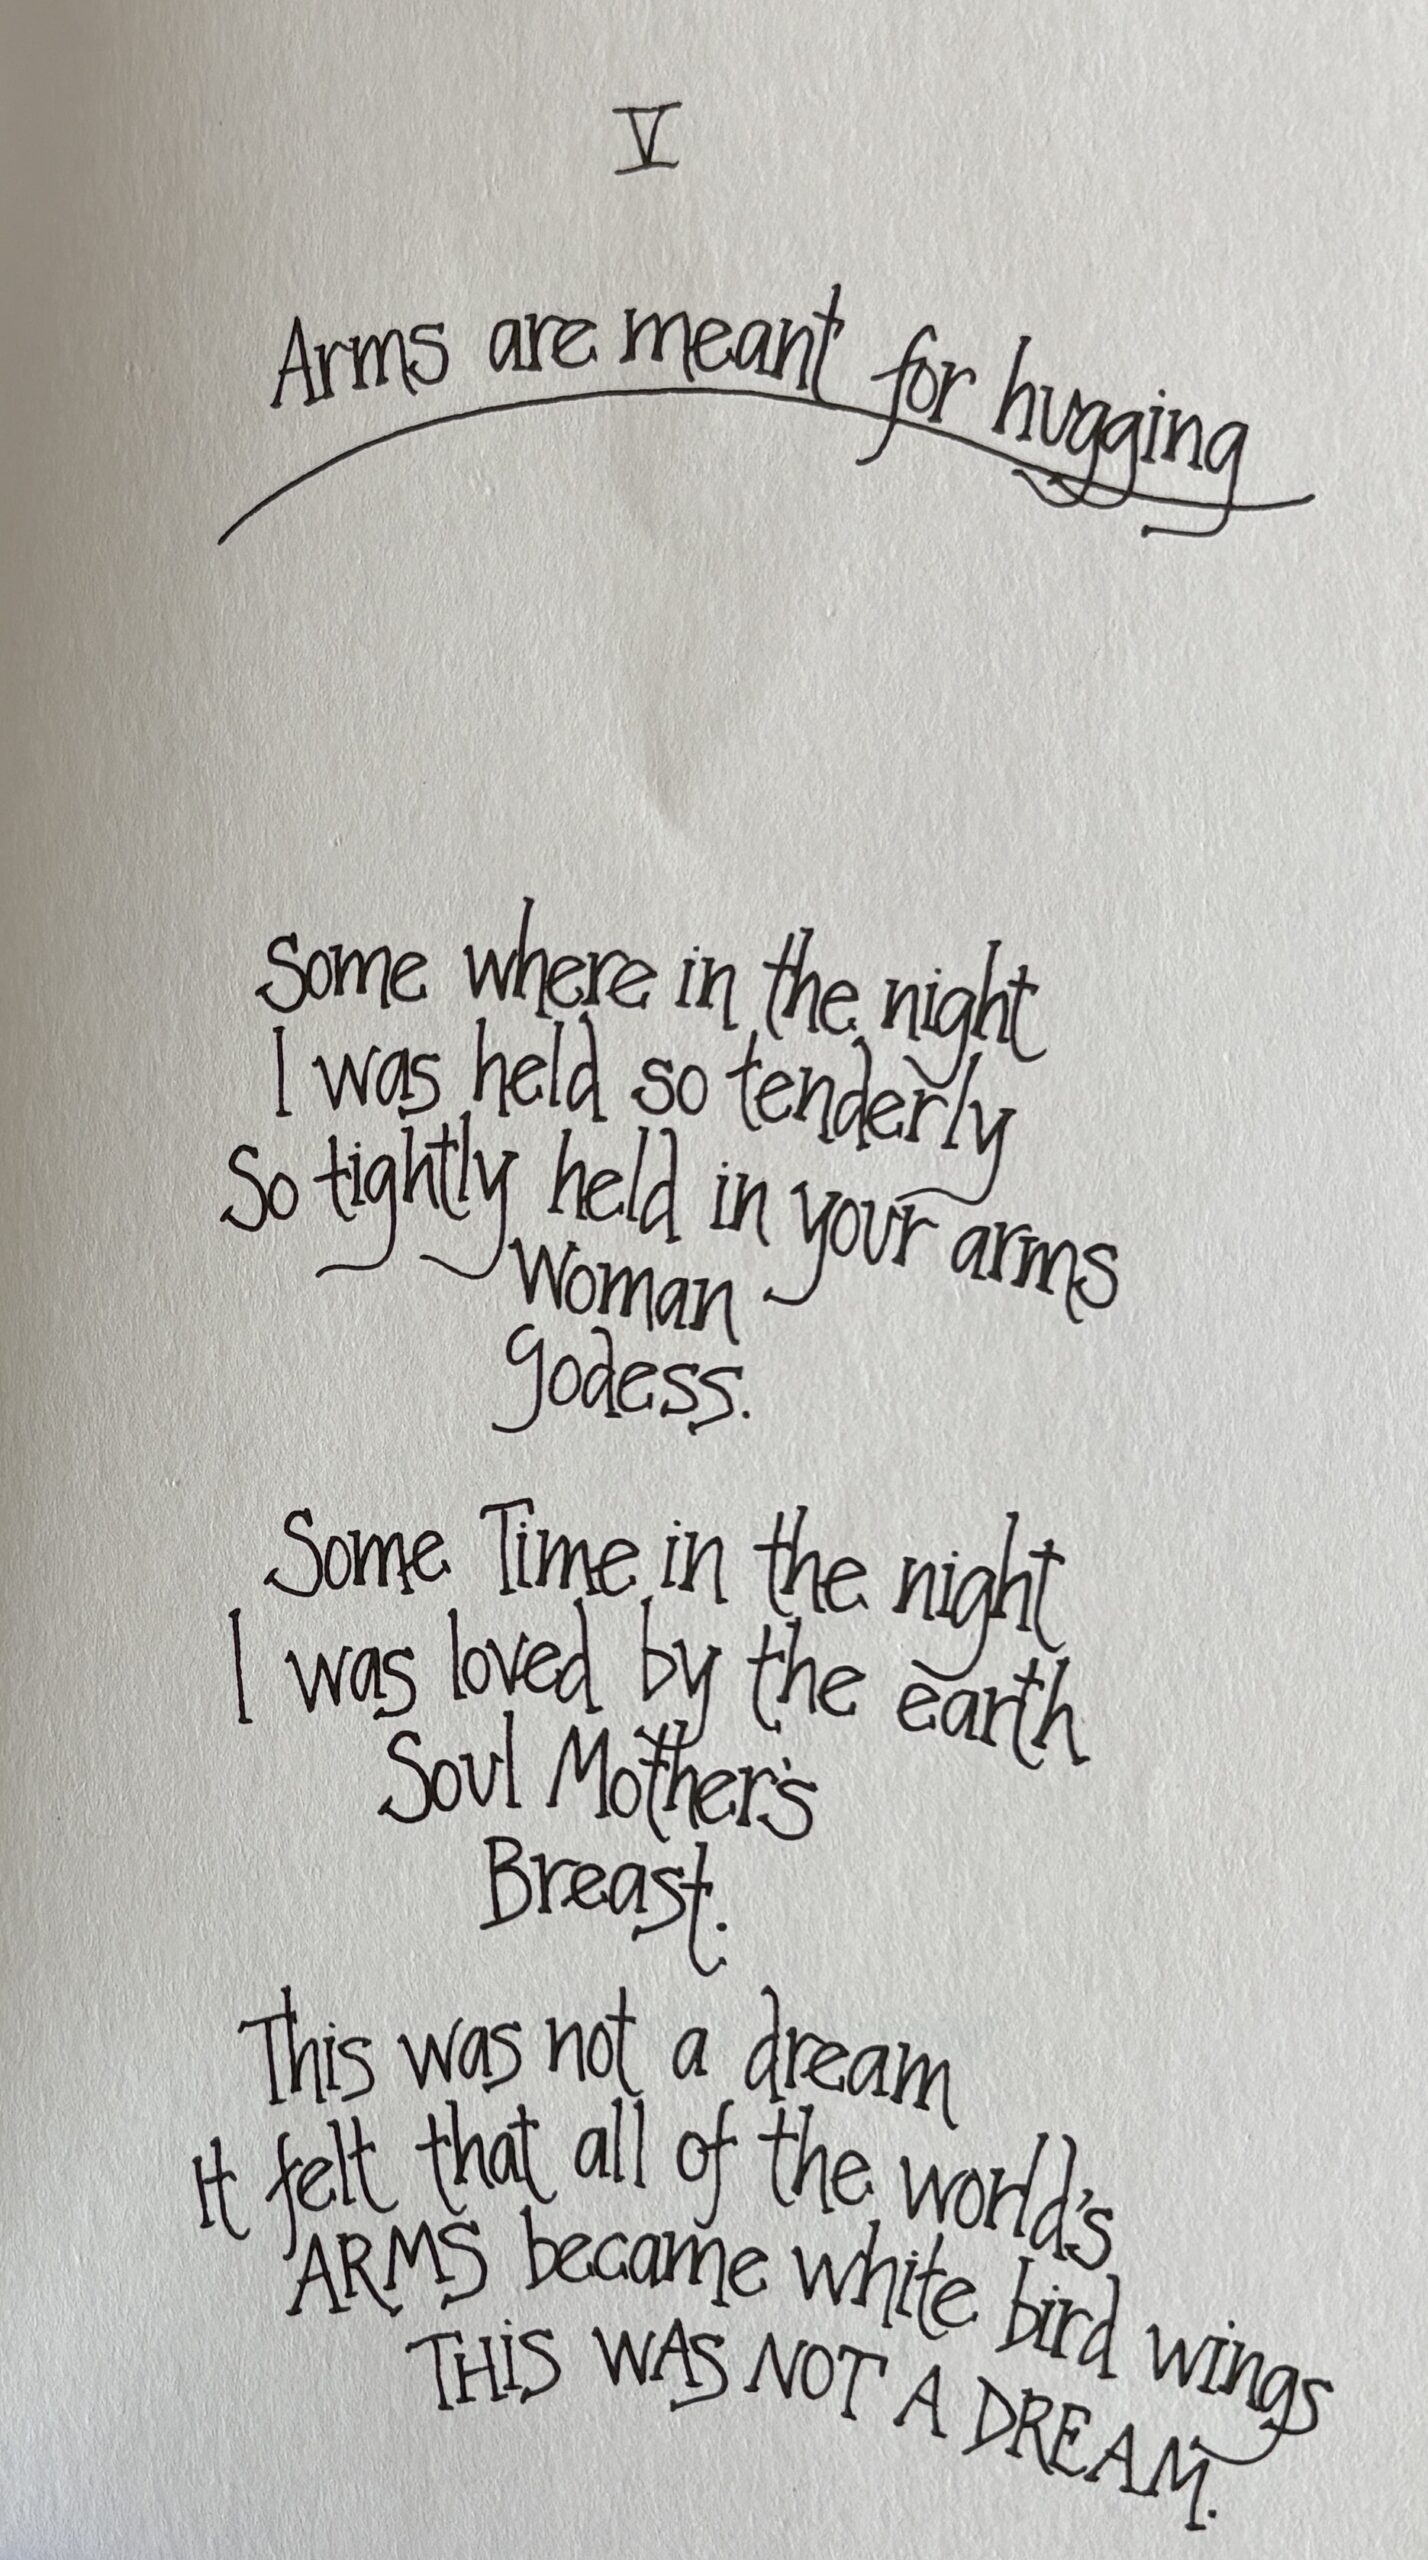 V
Arms are meant for hugging
Some where in the night
I was held so tenderly
So tightly held in your arms
Woman
godess.
Some Time in the night
I was loved by the earth
Soul Mother's
Breast.
This was not a dream
It felt that all of the world's
ARMS became white bird wings
THiS WAS NOT A DREAM.